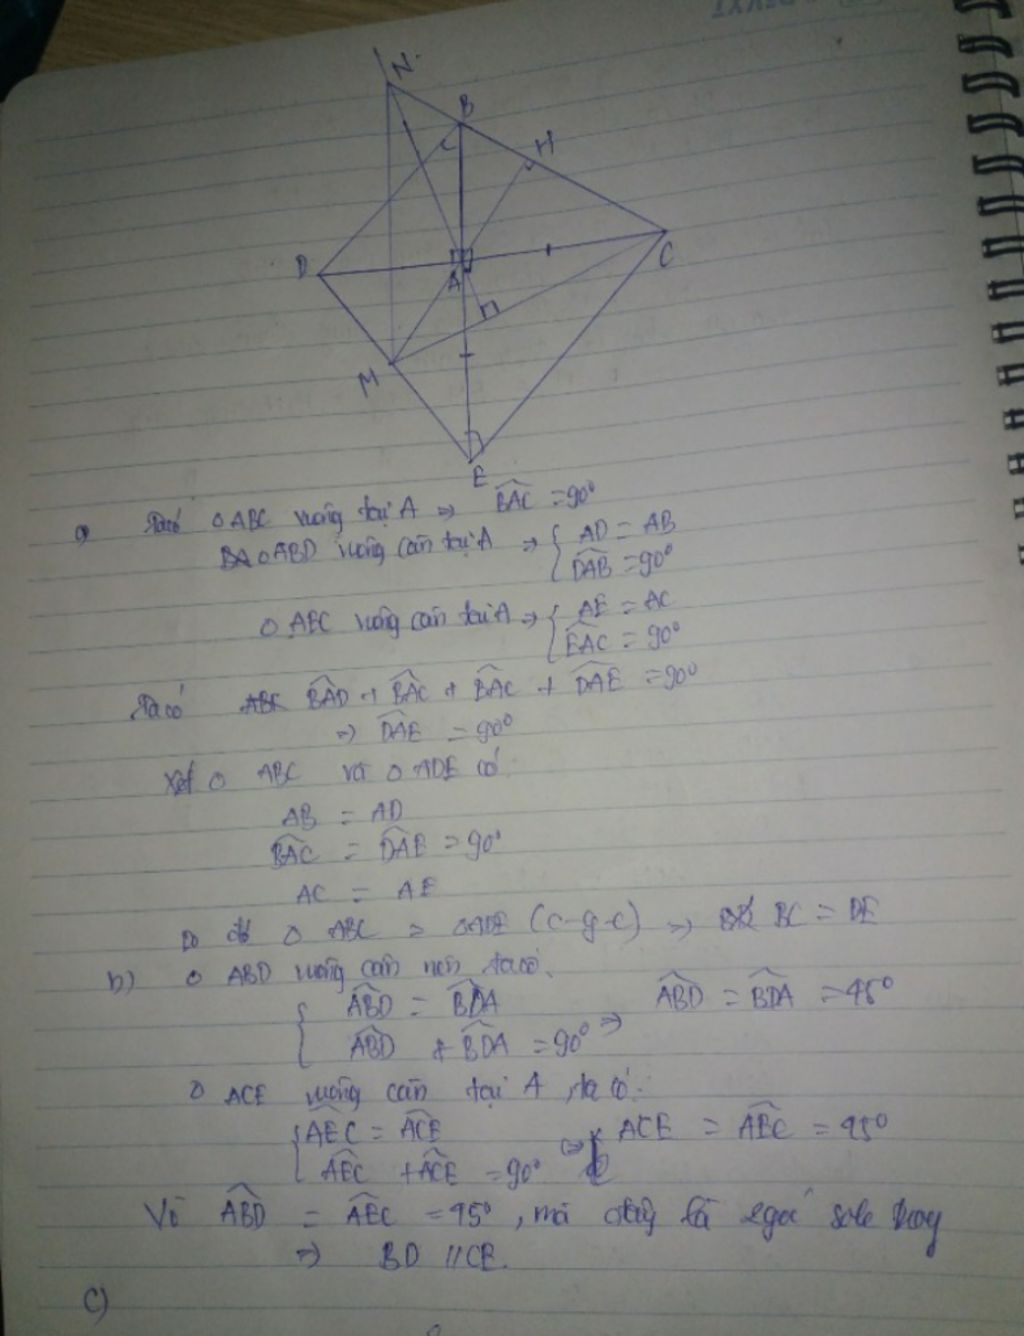 N
B
H
D
A
C
M
E
a) Ta có △ABC vuông tại A => BAC = 90°
BA △ABD vuông cân tại A => { AD = AB
DAB = 90°
△ AEC vuông cân tại A => { AE = AC
EAC = 90°
Ta có BAD + BAC + BAC + DAE = 90°
=> DAE = 90°
Xét △ ABC và △ ADE có
AB = AD
BAC = DAE = 90°
AC = AE
Do đó △ ABC = △ADE (c-g-c) => BC = DE
b) △ ABD vuông cân nên ta có.
{ ABD = BDA => ABD = BDA = 45°
ABD + BDA = 90°
△ ACE vuông cân tại A, ta có:
{ AEC = ACE => ACE = AEC = 45°
AEC + ACE = 90°
Vì ABD = AEC = 45°, mà đây là góc sole trong
=> BD // CE.
c)